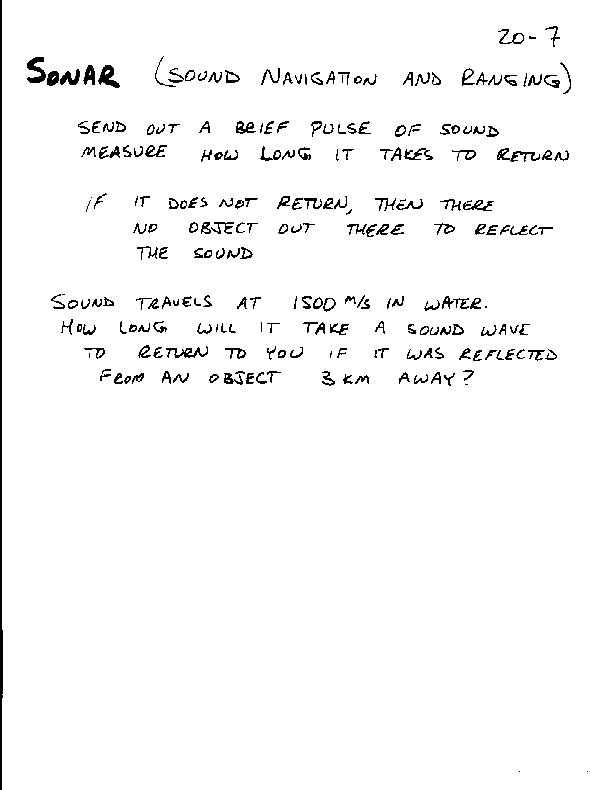 20-7
SONAR (SOUND NAVIGATION AND RANGING)
SEND OUT A BRIEF PULSE OF SOUND
MEASURE HOW LONG IT TAKES TO RETURN
IF IT DOES NOT RETURN, THEN THERE
NO OBJECT OUT THERE TO REFLECT
THE SOUND
SOUND TRAVELS AT 1500 M/S IN WATER.
HOW LONG WILL IT TAKE A SOUND WAVE
TO RETURN TO YOU IF IT WAS REFLECTED
FROM AN OBJECT 3 KM AWAY?